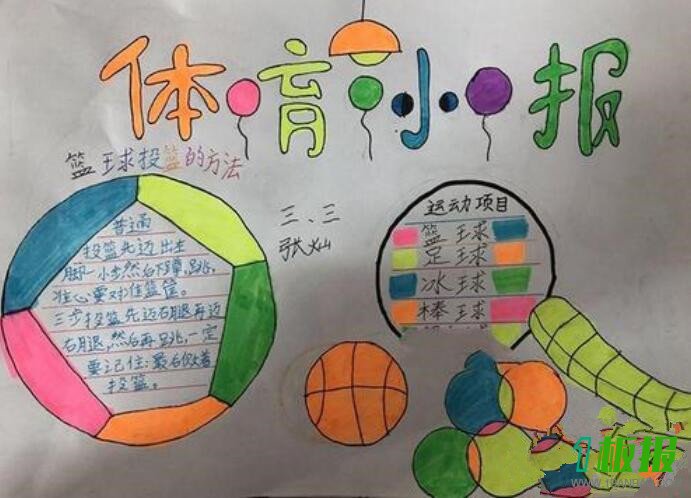 体育小报
篮球投篮的方法
三、三
张灿
普通
投篮先迈出左
脚一小步然后下蹲,跳,
注心要对准篮筐。
三步投篮先迈右腿再迈
右腿,然后再跳,一定
要记住:最后收着
投篮。
运动项目
篮球
足球
冰球
棒球
板报